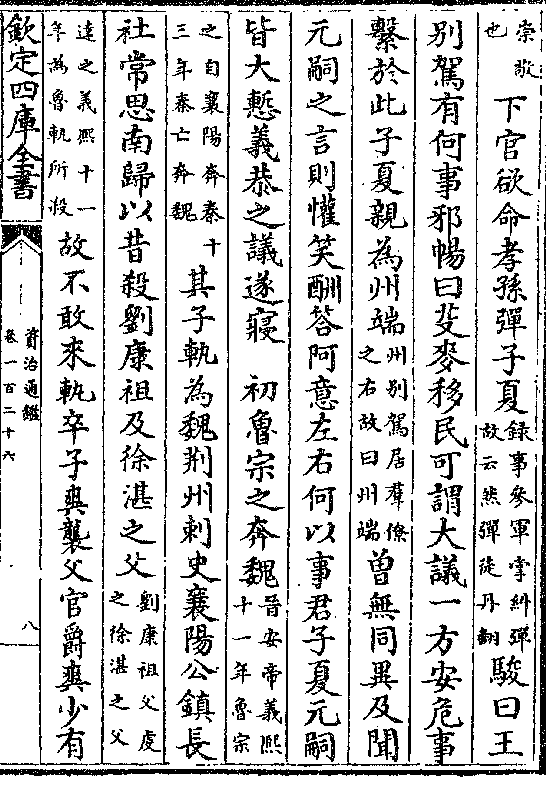 崇敬也下官欲命孝孫彈子夏錄事參軍掌糾彈故云然彈徒丹翻駿曰王
別駕有何事邪暢曰芟麥移民可謂大議一方安危事
繫於此子夏親為州端州別駕居羣僚之右故曰州端曾無同異及聞
元嗣之言則懽笑酬答阿意左右何以事君子夏元嗣
皆大慙義恭之議遂寢　初魯宗之奔魏晉安帝義熈十一年魯宗
之自襄陽奔秦十三年秦亡奔魏其子軌為魏荆州刺史襄陽公鎮長
社常思南歸以昔殺劉康祖及徐湛之父劉康祖父虔之徐湛之父
逵之義熈十一年為魯軌所殺故不敢來軌卒子爽襲父官爵爽少有
欽定四庫全書
資治通鑑
卷一百二十六
八